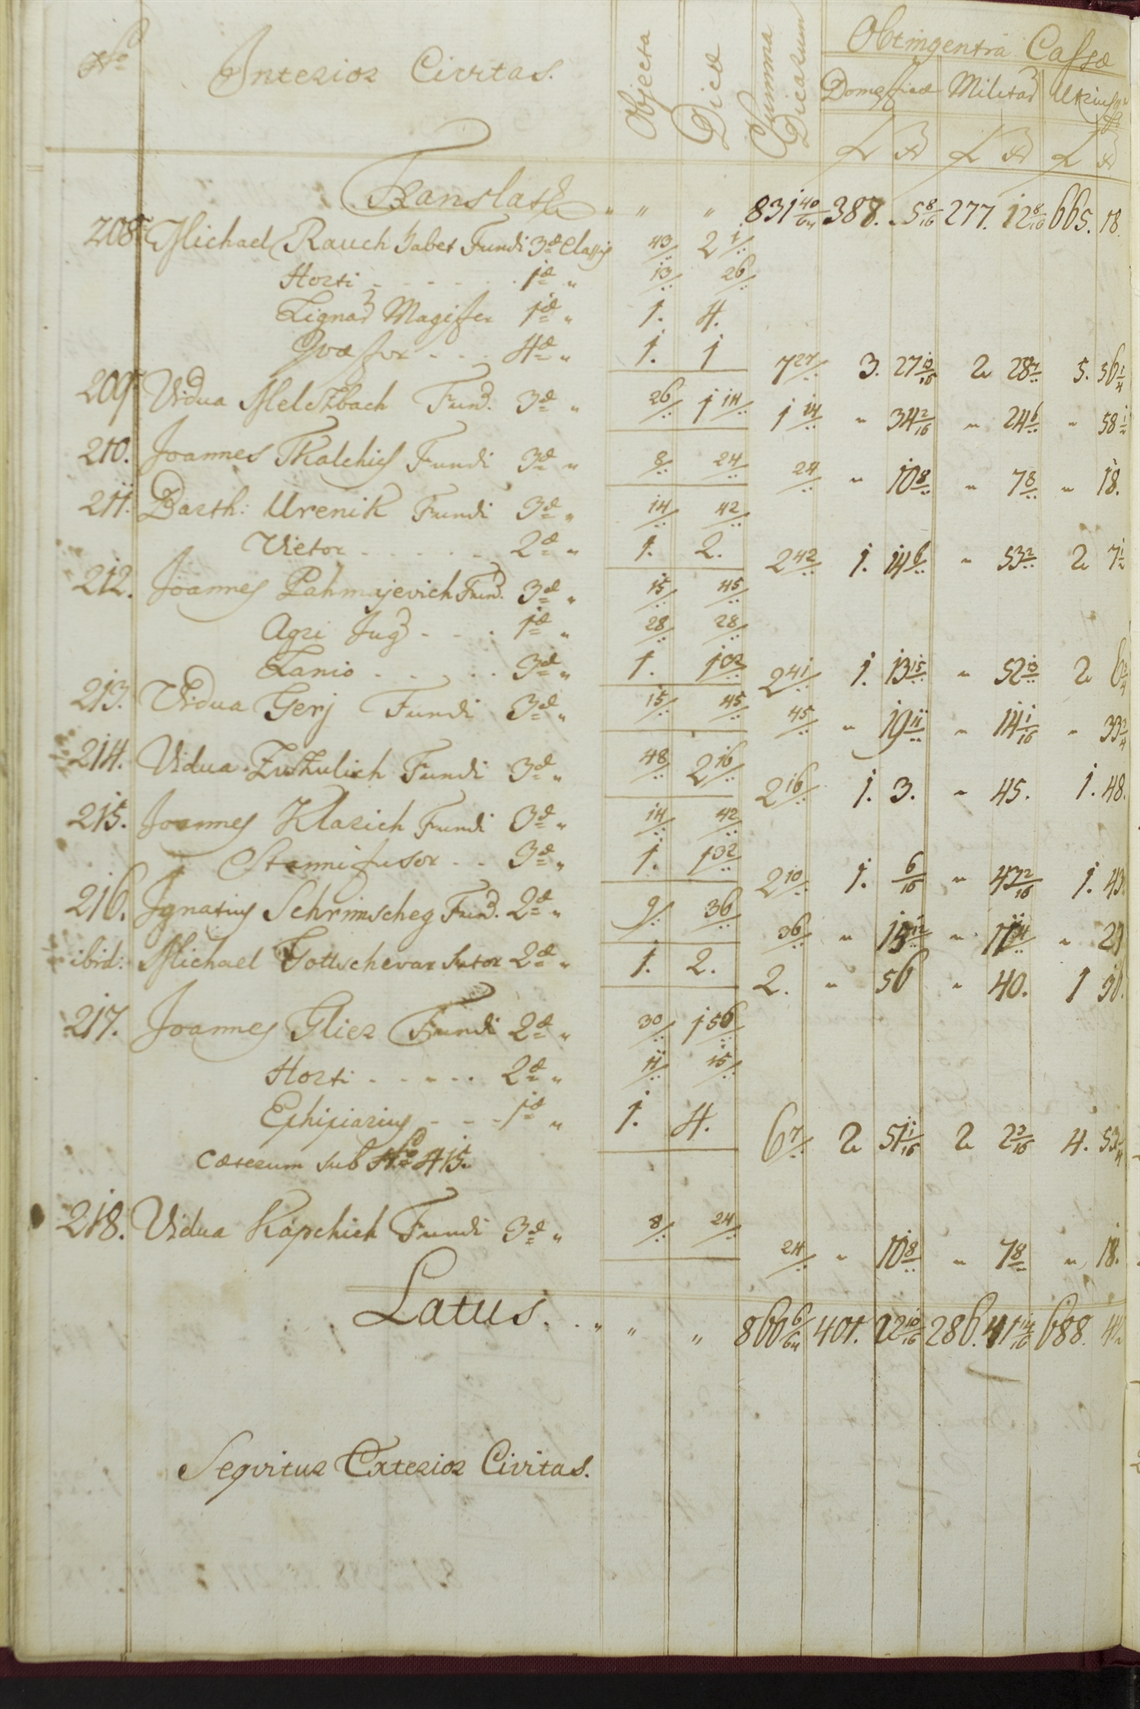 Nro Interior Civitas. Objecta Dicæ Summa Dicarum Obtingentia Cassæ
Domesticæ Militar Utriusq
f xr f xr f xr
Translatæ " " " 831 40/64 388. 5 8/16 277. 12 8/16 665. 18.
208. Michael Rauch habet Fundi 3æ Classis 43/.. 2 1/..
Horti - - - - - - 1æ " 13/.. 26/..
Lignar Magister 1æ " 1. 4.
Quæstor - - - 4æ " 1. 1 7 27/.. 3. 27 10/16 2 28 7/.. 5. 56 1/4
209. Vidua Melczbach Fund. 3æ " 26/.. 1 14/.. 1 14/.. " 34 2/16 " 24 6/.. " 58 1/2
210. Joannes Tkalchich Fundi 3æ " 8/.. 24/.. 24/.. " 10 8/.. " 7 8/.. " 18.
211. Barth: Urenik Fundi 3æ " 14/.. 42/..
Vietor - - - - - - 2æ " 1. 2. 2 42/.. 1. 14 6/.. " 53 2/.. 2 7 1/2
212. Joannes Pahmajevich Fund. 3æ " 15/.. 45/..
Agri Jug - - - 1æ " 28/.. 28/..
Lanio - - - - - 3æ " 1. 1 32/.. 2 41/.. 1. 13 15/.. " 52 10/.. 2 6
213. Vidua Gerj Fundi 3æ " 15/.. 45/.. 45/.. " 19 11/.. " 14 1/16 " 33 3/4
214. Vidua Zuzulich Fundi 3æ " 48/.. 2 16/.. 2 16/.. 1. 3. " 45. 1. 48.
215. Joannes Klarich Fundi 3æ " 14/.. 42/..
Stannifusor - - 3æ " 1. 1 32/.. 2 10/.. 1. 6/16 " 43 2/16 1. 43
216. Ignatius Schrimscheg Fund. 2æ " 9/.. 36/.. 36/.. " 15 12/.. " 11 4/.. " 27
ibid: Michael Gottschevar Sutor 2æ " 1. 2. 2. " 56 " 40. 1 36.
217. Joannes Glier Fundi 2æ " 30/.. 1 56/..
Horti - - - - - 2æ " 11/.. 15/..
Ephipiarius - - - 1æ " 1. 4. 6 7/.. 2 51 11/16 2 2 3/16 4. 53
Cæterum sub Nro 415.
218. Vidua Kapchich Fundi 3æ " 8/.. 24/.. 24/.. " 10 8/.. " 7 8/.. " 18.
Latus. . " " " 866 6/64 401. 22 10/16 286. 41 14/16 688. 4
Sequitur Exterior Civitas.